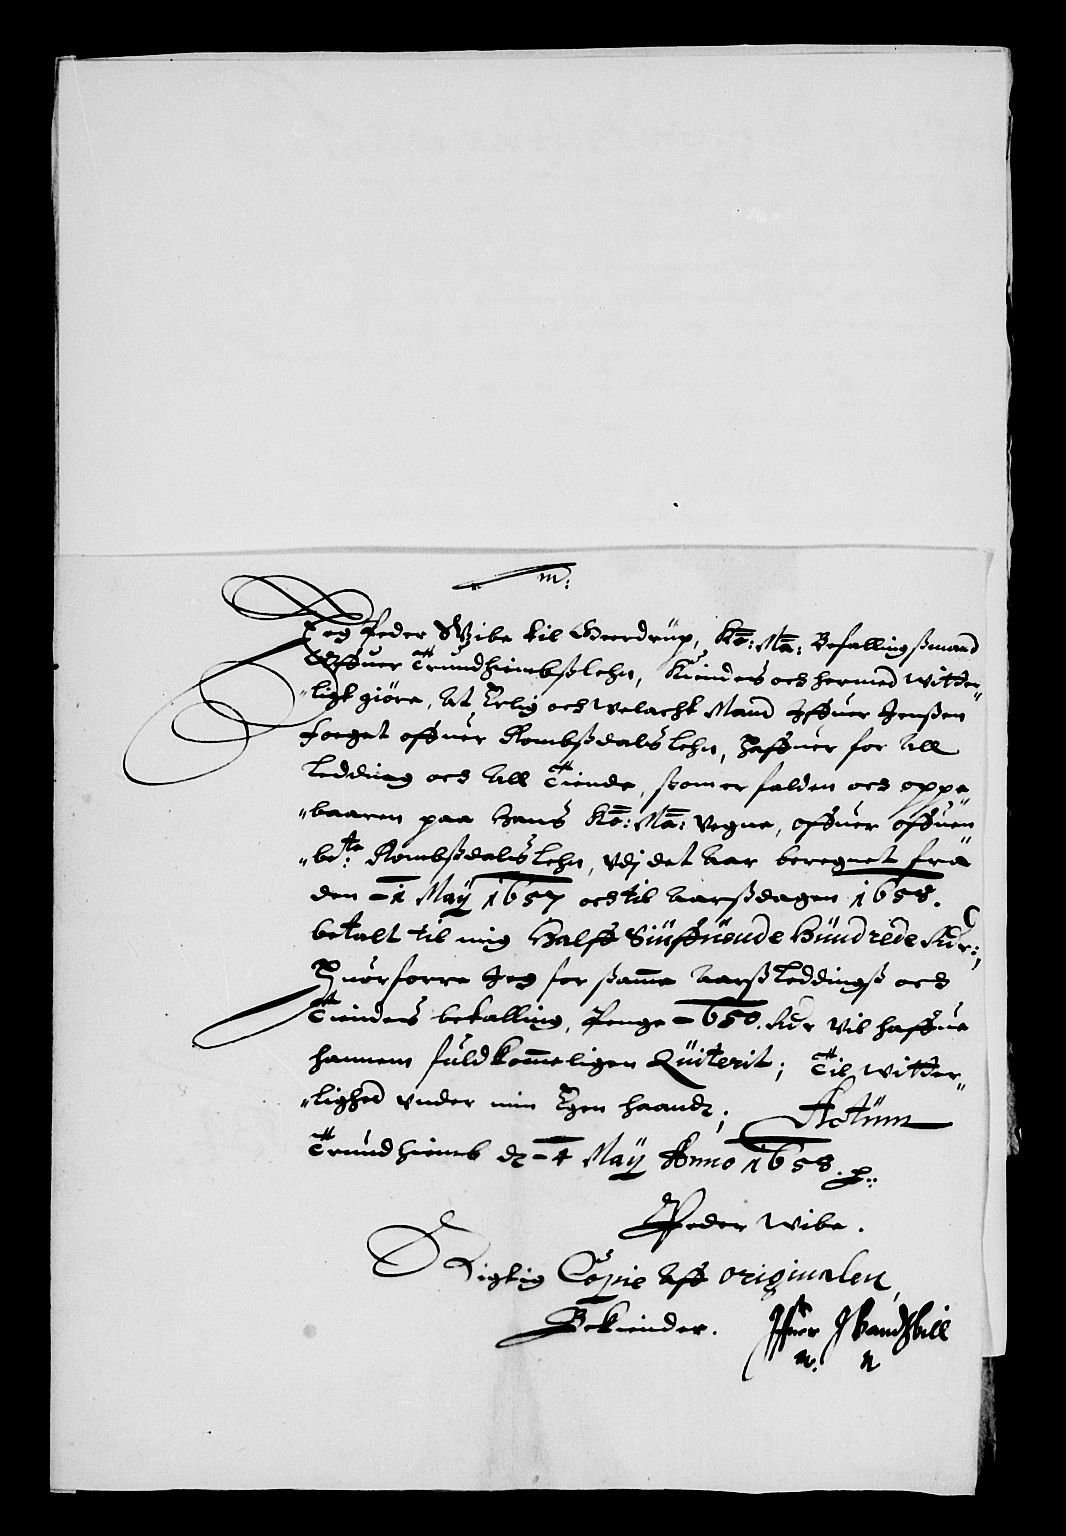 m:
Jeg Peder Wibe til Gierdrup, Ko: Ma: Befallingsmand
Offuer Trundhiembslehn, Kiendes och hermed witter„
„ligt giöre, At Erlig och Welacht Mand Iffuer Jenßen
Foeget offuer Rombsdals lehn, Haffuer for All
Ledding och All Tiende, somer falden och oppe„
„baaren paa Hans Ko: Ma: Vegne, offuer offuen
„be:te Rombsdals Lehn, Udj det Aar beregnet fra
den – 1 May 1657 och til Aarsdagen 1658.
betalt til mig Halff Siuffuende Hundrede Rdr:,
Huorforre Jeg for samme Aarß Leddingß och
Tiendes betalling, Penge – 650. Rdr Vil haffue
hannem fuldkommeligen Quiterit; Til witter„
„lighed Under min Egen haandt; Actum
Trundhiemb d. – 4 May Anno 1658. p::
Peder Wibe.
Rigtig Copie Aff originalen,
Bekiender. Iffuer J
m. n